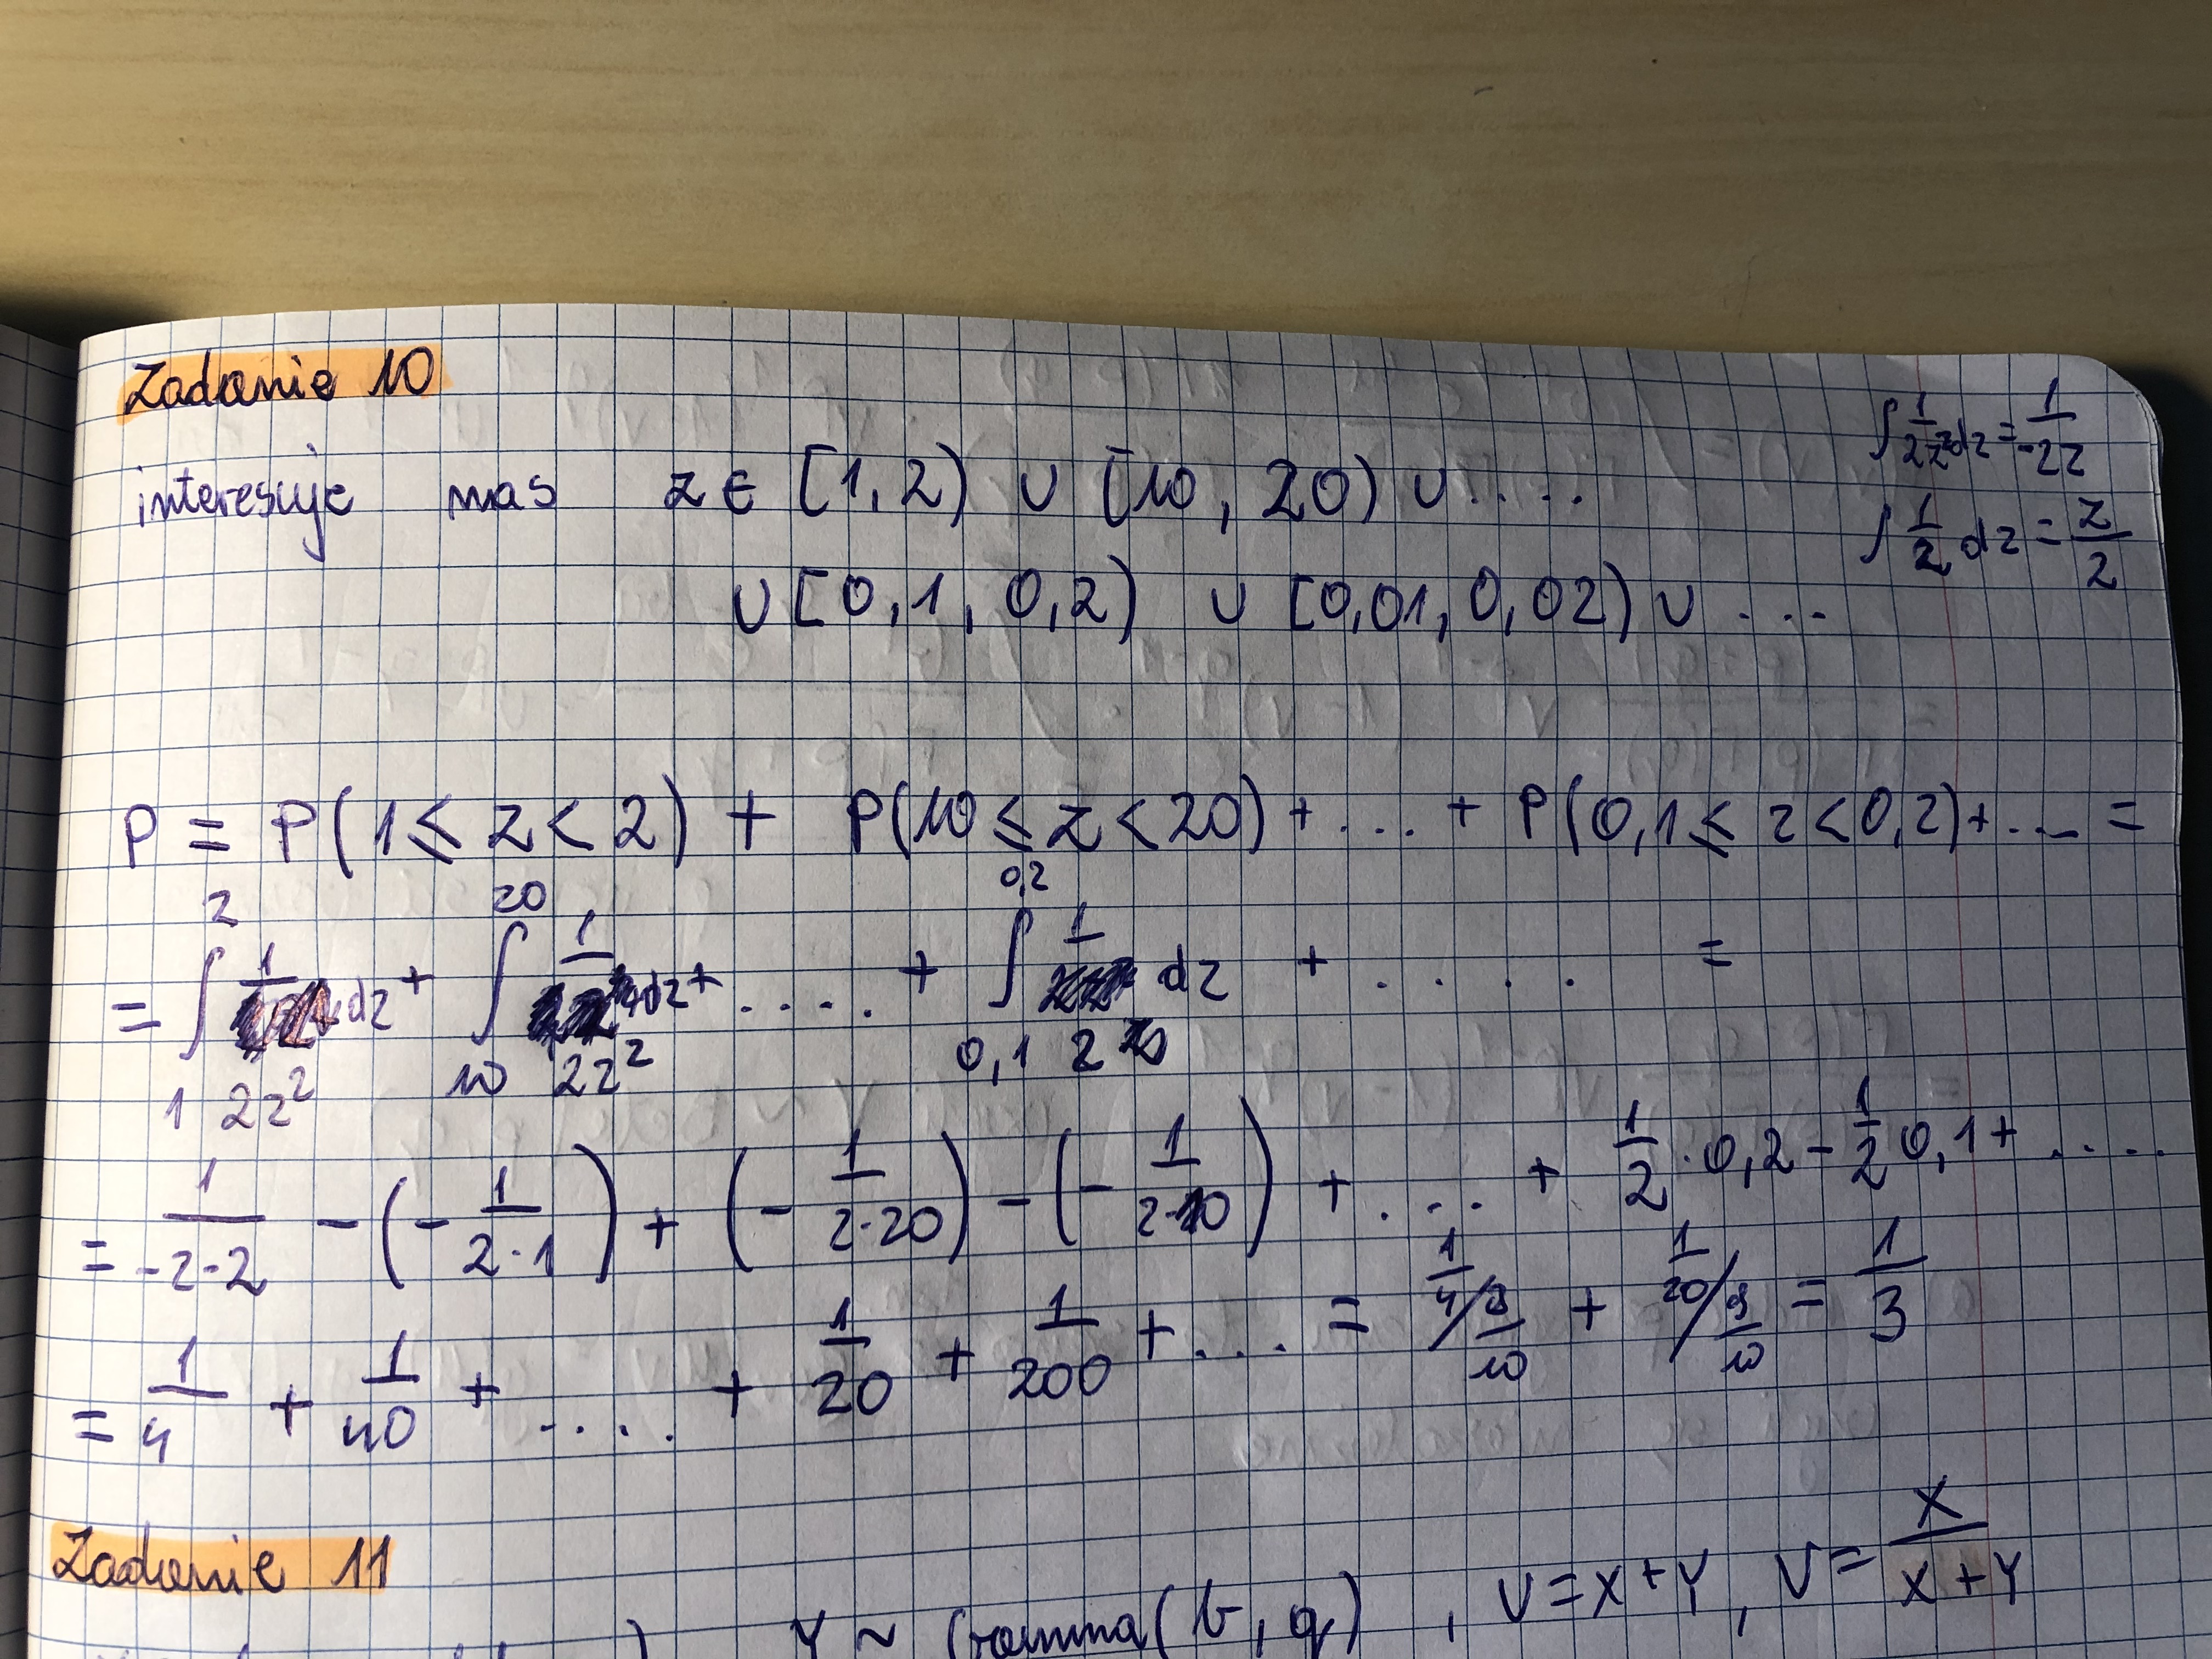 Zadanie 10
∫ 1/2z² dz = 1/-2z
interesuje nas z ∈ [1, 2) ∪ [10, 20) ∪ ....
∫ 1/2 dz = z/2
∪ [0,1, 0,2) ∪ [0,01, 0,02) ∪ ....
P = P(1 ≤ z < 2) + P(10 ≤ z < 20) + ... + P(0,1 ≤ z < 0,2) + ... =
= ∫₁² 1/2z² dz + ∫₁₀²⁰ 1/2z² dz + .... + ∫₀,₁⁰,² 1/2 dz + .... =
= 1/-2·2 - (- 1/2·1) + (- 1/2·20) - (- 1/2·10) + .... + 1/2 · 0,2 - 1/2 0,1 + ....
= 1/4 + 1/40 + .... + 1/20 + 1/200 + .... = 1/4 / 9/10 + 1/20 / 9/10 = 1/3
Zadanie 11
Y ~ Gamma(b, q), U = X + Y, V = X/X+Y